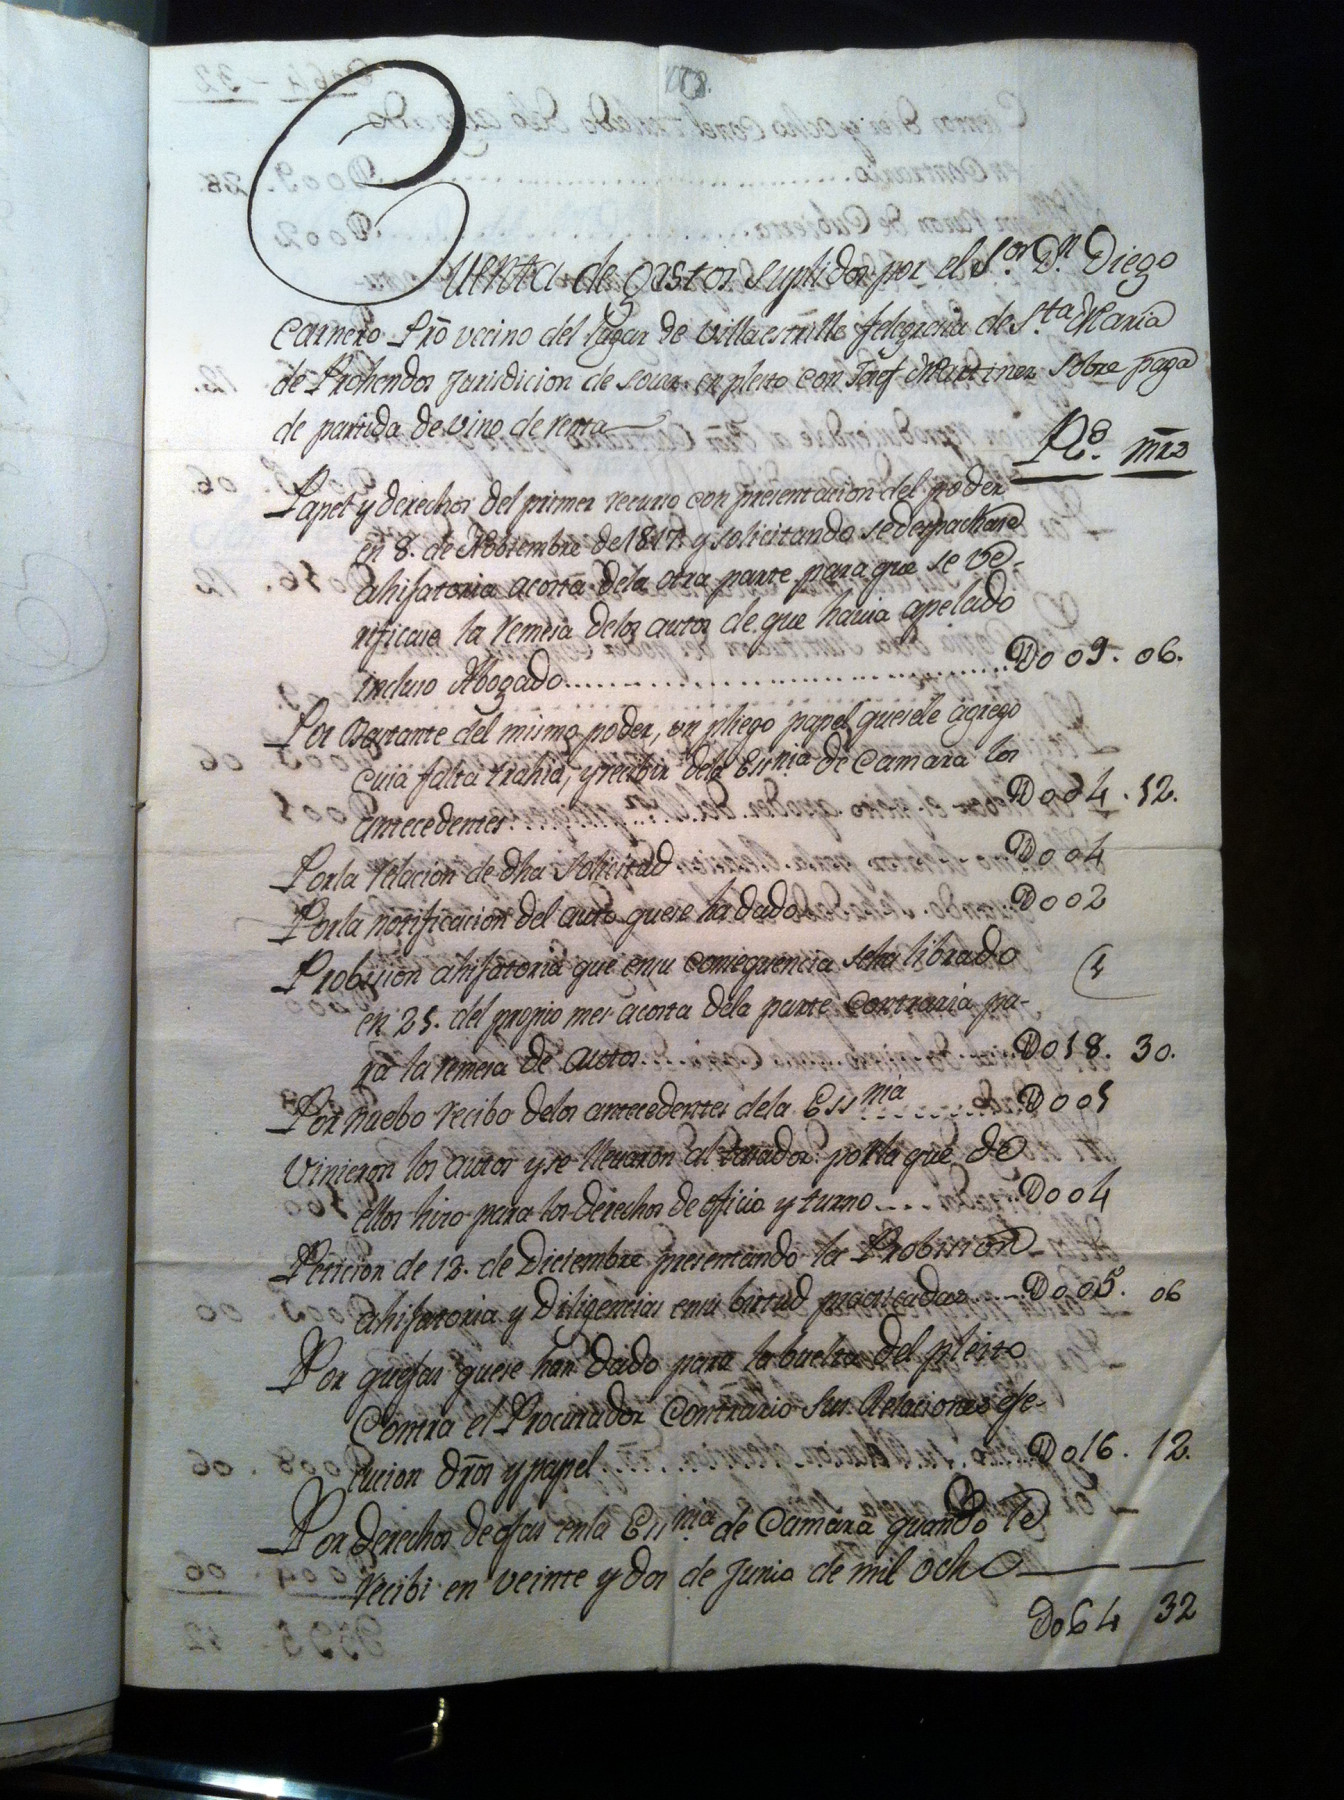 178.
Cuenta de gastos suplidos por el S.or D.n Diego
Carnero Pro vecino del lugar de Villaestrille felegresia de S.ta Maria
de Prohendos Jurisdicion de en pleito con Josef Martinez sobre paga
de partida de vino de renta
R.s mrs
Papel y derechos del primer recurso con presentacion del poder
en 8. de Nobiembre de 1817. y solicitando se despachase
ahisatoria acosta dela otra parte para que se be-
rificase la remesa delos autos de que havia apelado
incluso Abogado............ Do09. 06.
Por Bastante del mismo poder, un pliego papel quesele agregó
cuia falta trahia, y recibir dela Ess.nia de Camara los
antecedentes......... Do04. 12.
Por la relacion de dha solicitud Do04
Por la notificacion del auto quese ha dado Do02
Probision ahisatoria que ensu consequencia seha librado
en 25. del propio mes acosta dela parte contraria pa-
ra la remesa de autos......... Do18. 30.
Por nuebo recibo delos antecedentes dela Ess.nia ....... Do05
Vinieron los autos y se llevaron al tasador por la que de
ellos hizo para los derechos de oficio y turno.... Do04
Peticion de 12. de Diciembre presentando la Probision
ahisatoria y Diligencias ensu birtud practicadas..... Do05. 06
Por quejas quese han dado para la buelta del pleito
Contra el Procurador Contrario sus Relaciones ese-
cucion dros y papel Do16. 12.
Por derechos de ojas enla Ess.nia de Camara quando le
recibi en veinte y dos de Junio de mil ocho
Do64 32